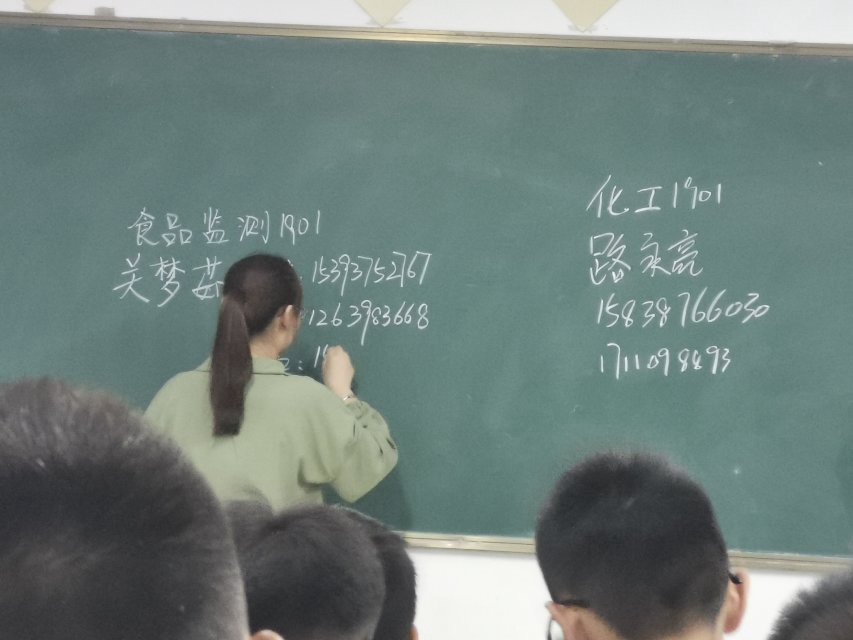 食品监测1901
关梦茹 15393752767
1263983668
化工1901
路永亮
15838766030
1711098893